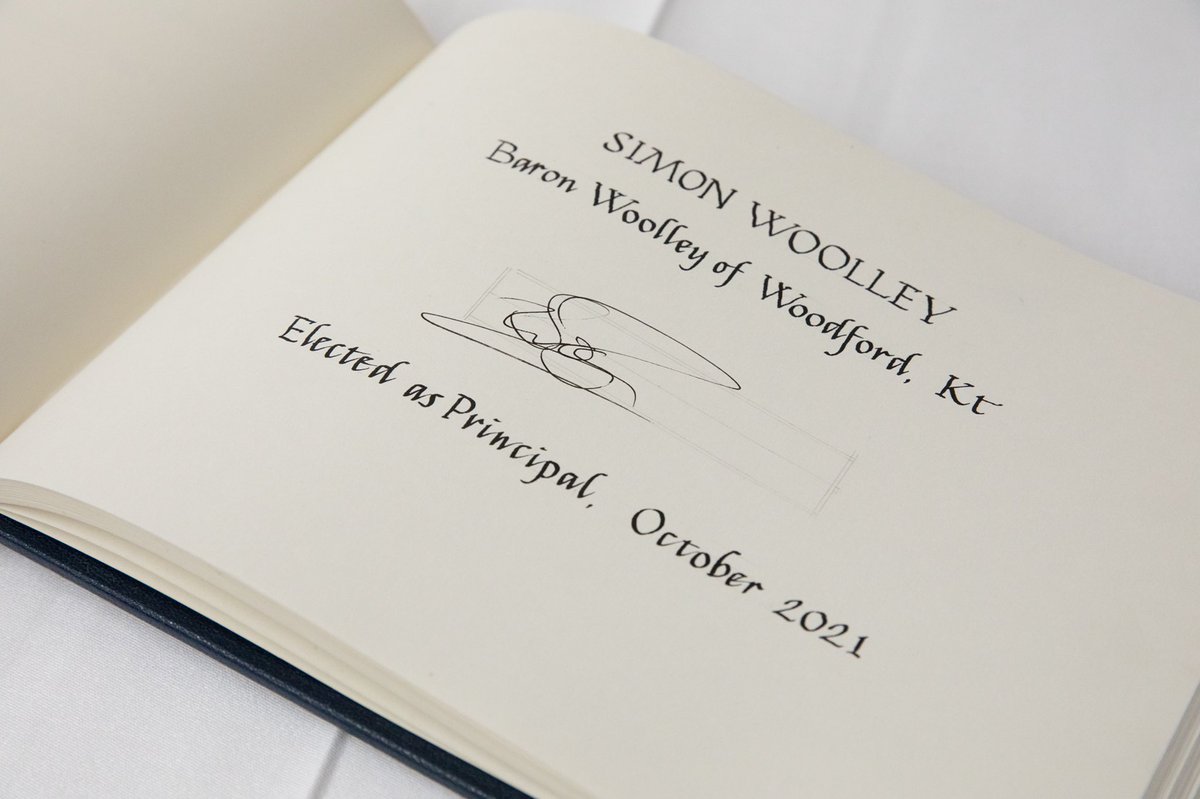 SIMON WOOLLEY
Baron Woolley of Woodford, Kt
Elected as Principal, October 2021